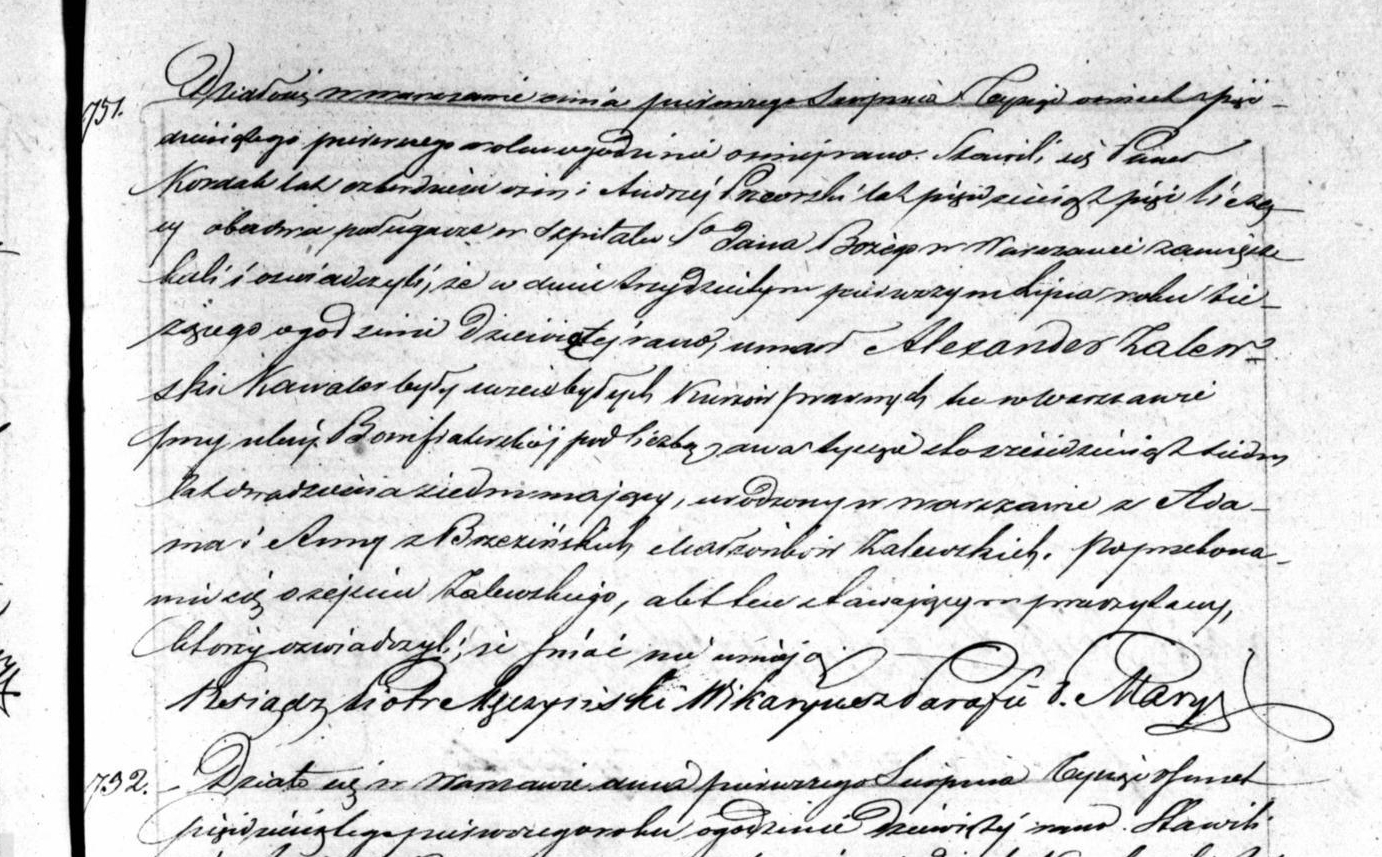 731. Działo się w Warszawie dnia pierwszego Sierpnia Tysiąc ośmset pięć-
dziesiątego pierwszego roku o godzinie ósmej rano. Stawili się Paweł
Kondak lat czterdzieści osm i Andrzej lat pięćdziesiąt pięć liczą-
cy obadwa posługacze w Szpitalu Sgo Jana Bożego w Warszawie zamiesz-
kali i oświadczyli, że w dniu trzydziestym pierwszym Lipca roku bie-
żącego o godzinie Dziewiątej rano, umarł Alexander Zalew-
ski Kawaler były uczeń byłych Kursów prawnych tu w Warszawie
przy ulicy Bonifraterskiej pod liczbą dwa tysiące sto sześćdziesiąt siedm
lat dwadzieścia siedm mający, urodzony w Warszawie z Ada-
ma i Anny z Brzezińskich Małżonków Zalewskich. Po przekona-
niu się o zejściu Zalewskiego, akt ten stawającym przeczytany,
którzy oświadczyli, że pisać nie umieją
Ksiądz Piotr Mączyński Wikaryusz Parafii P. Maryi
732. Działo się w Warszawie dnia pierwszego Sierpnia Tysiąc ośmset
pięćdziesiątego pierwszego roku o godzinie Dziewiątej rano. Stawili